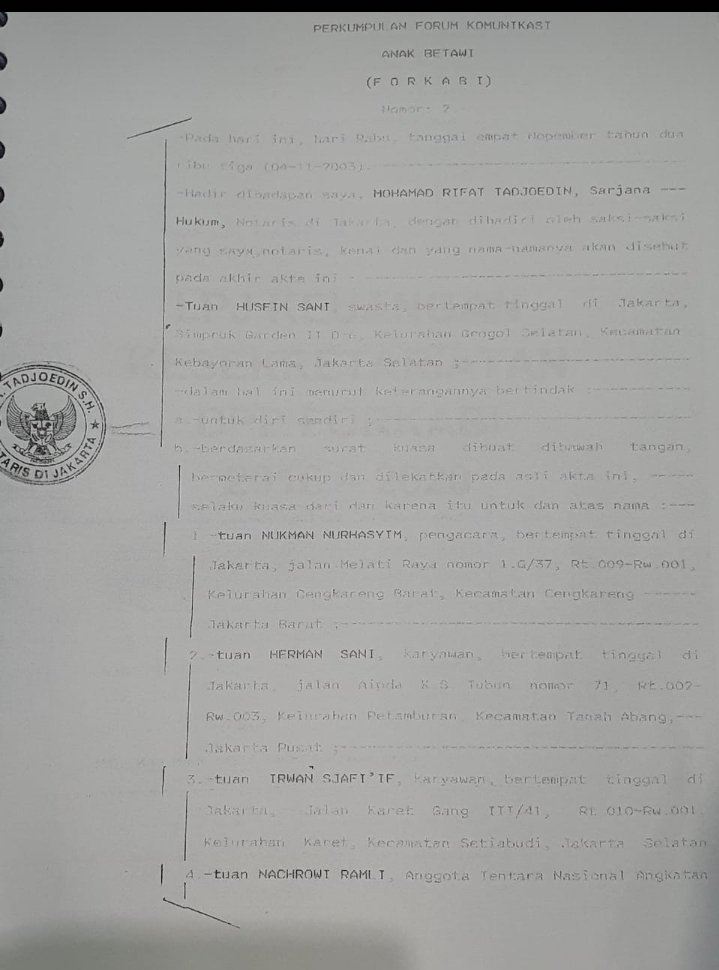 PERKUMPULAN FORUM KOMUNIKASI
ANAK BETAWI
(F O R K A B I)
Nomor: 2
-Pada hari ini, hari Rabu, tanggal empat Nopember tahun dua
ribu tiga (04-11-2003).
-Hadir dihadapan saya, MOHAMAD RIFAT TADJOEDIN, Sarjana ---
Hukum, Notaris di Jakarta, dengan dihadiri oleh saksi-saksi
yang saya,notaris, kenal dan yang nama-namanya akan disebut
pada akhir akta ini :
-Tuan HUSEIN SANI, swasta, bertempat tinggal di Jakarta,
Simpruk Garden II D-6, Kelurahan Grogol Selatan, Kecamatan
Kebayoran Lama, Jakarta Selatan ;
-dalam hal ini menurut keterangannya bertindak :
a.-untuk diri sendiri ;
b.-berdasarkan surat kuasa dibuat dibawah tangan,
bermeterai cukup dan dilekatkan pada asli akta ini, -----
selaku kuasa dari dan karena itu untuk dan atas nama :---
1.-tuan NUKMAN NURHASYIM, pengacara, bertempat tinggal di
Jakarta, jalan Melati Raya nomor 1.G/37, Rt.009-Rw.001,
Kelurahan Cengkareng Barat, Kecamatan Cengkareng ------
Jakarta Barat ;
2.-tuan HERMAN SANI, karyawan, bertempat tinggal di
Jakarta, jalan Aipda K.S. Tubun nomor 71, Rt.002-
Rw.003, Kelurahan Petamburan, Kecamatan Tanah Abang,---
Jakarta Pusat ;
3.-tuan IRWAN SJAFI'IE, karyawan, bertempat tinggal di
Jakarta, Jalan Karet Gang III/41, Rt.010-Rw.001,
Kelurahan Karet, Kecamatan Setiabudi, Jakarta Selatan
4.-tuan NACHROWI RAMLI, Anggota Tentara Nasional Angkatan
TADJOEDIN S.H. ★
TARIS DI JAKARTA